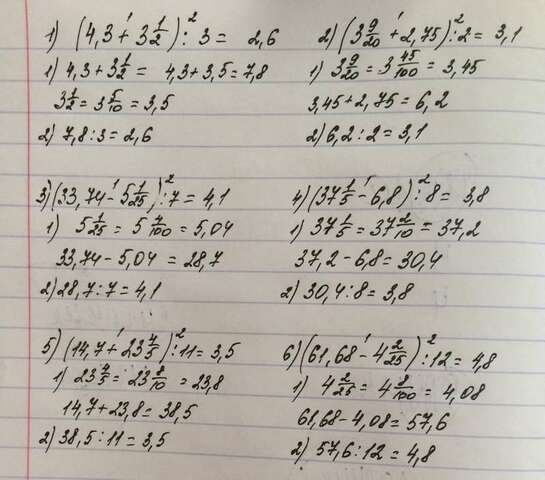 1) (4,3 + 3 1/2) : 3 = 2,6
1) 4,3 + 3 1/2 = 4,3 + 3,5 = 7,8
3 1/2 = 3 5/10 = 3,5
2) 7,8 : 3 = 2,6
2) (3 9/20 + 2,75) : 2 = 3,1
1) 3 9/20 = 3 45/100 = 3,45
3,45 + 2,75 = 6,2
2) 6,2 : 2 = 3,1
3) (33,74 - 5 1/25) : 7 = 4,1
1) 5 1/25 = 5 4/100 = 5,04
33,74 - 5,04 = 28,7
2) 28,7 : 7 = 4,1
4) (37 1/5 - 6,8) : 8 = 3,8
1) 37 1/5 = 37 2/10 = 37,2
37,2 - 6,8 = 30,4
2) 30,4 : 8 = 3,8
5) (14,7 + 23 4/5) : 11 = 3,5
1) 23 4/5 = 23 8/10 = 23,8
14,7 + 23,8 = 38,5
2) 38,5 : 11 = 3,5
6) (61,68 - 4 2/25) : 12 = 4,8
1) 4 2/25 = 4 8/100 = 4,08
61,68 - 4,08 = 57,6
2) 57,6 : 12 = 4,8